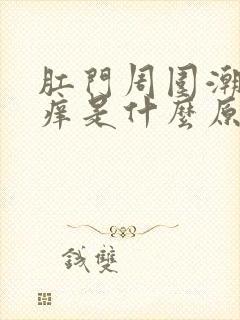 肛門周圍潮
痒是什麼原
錢雙